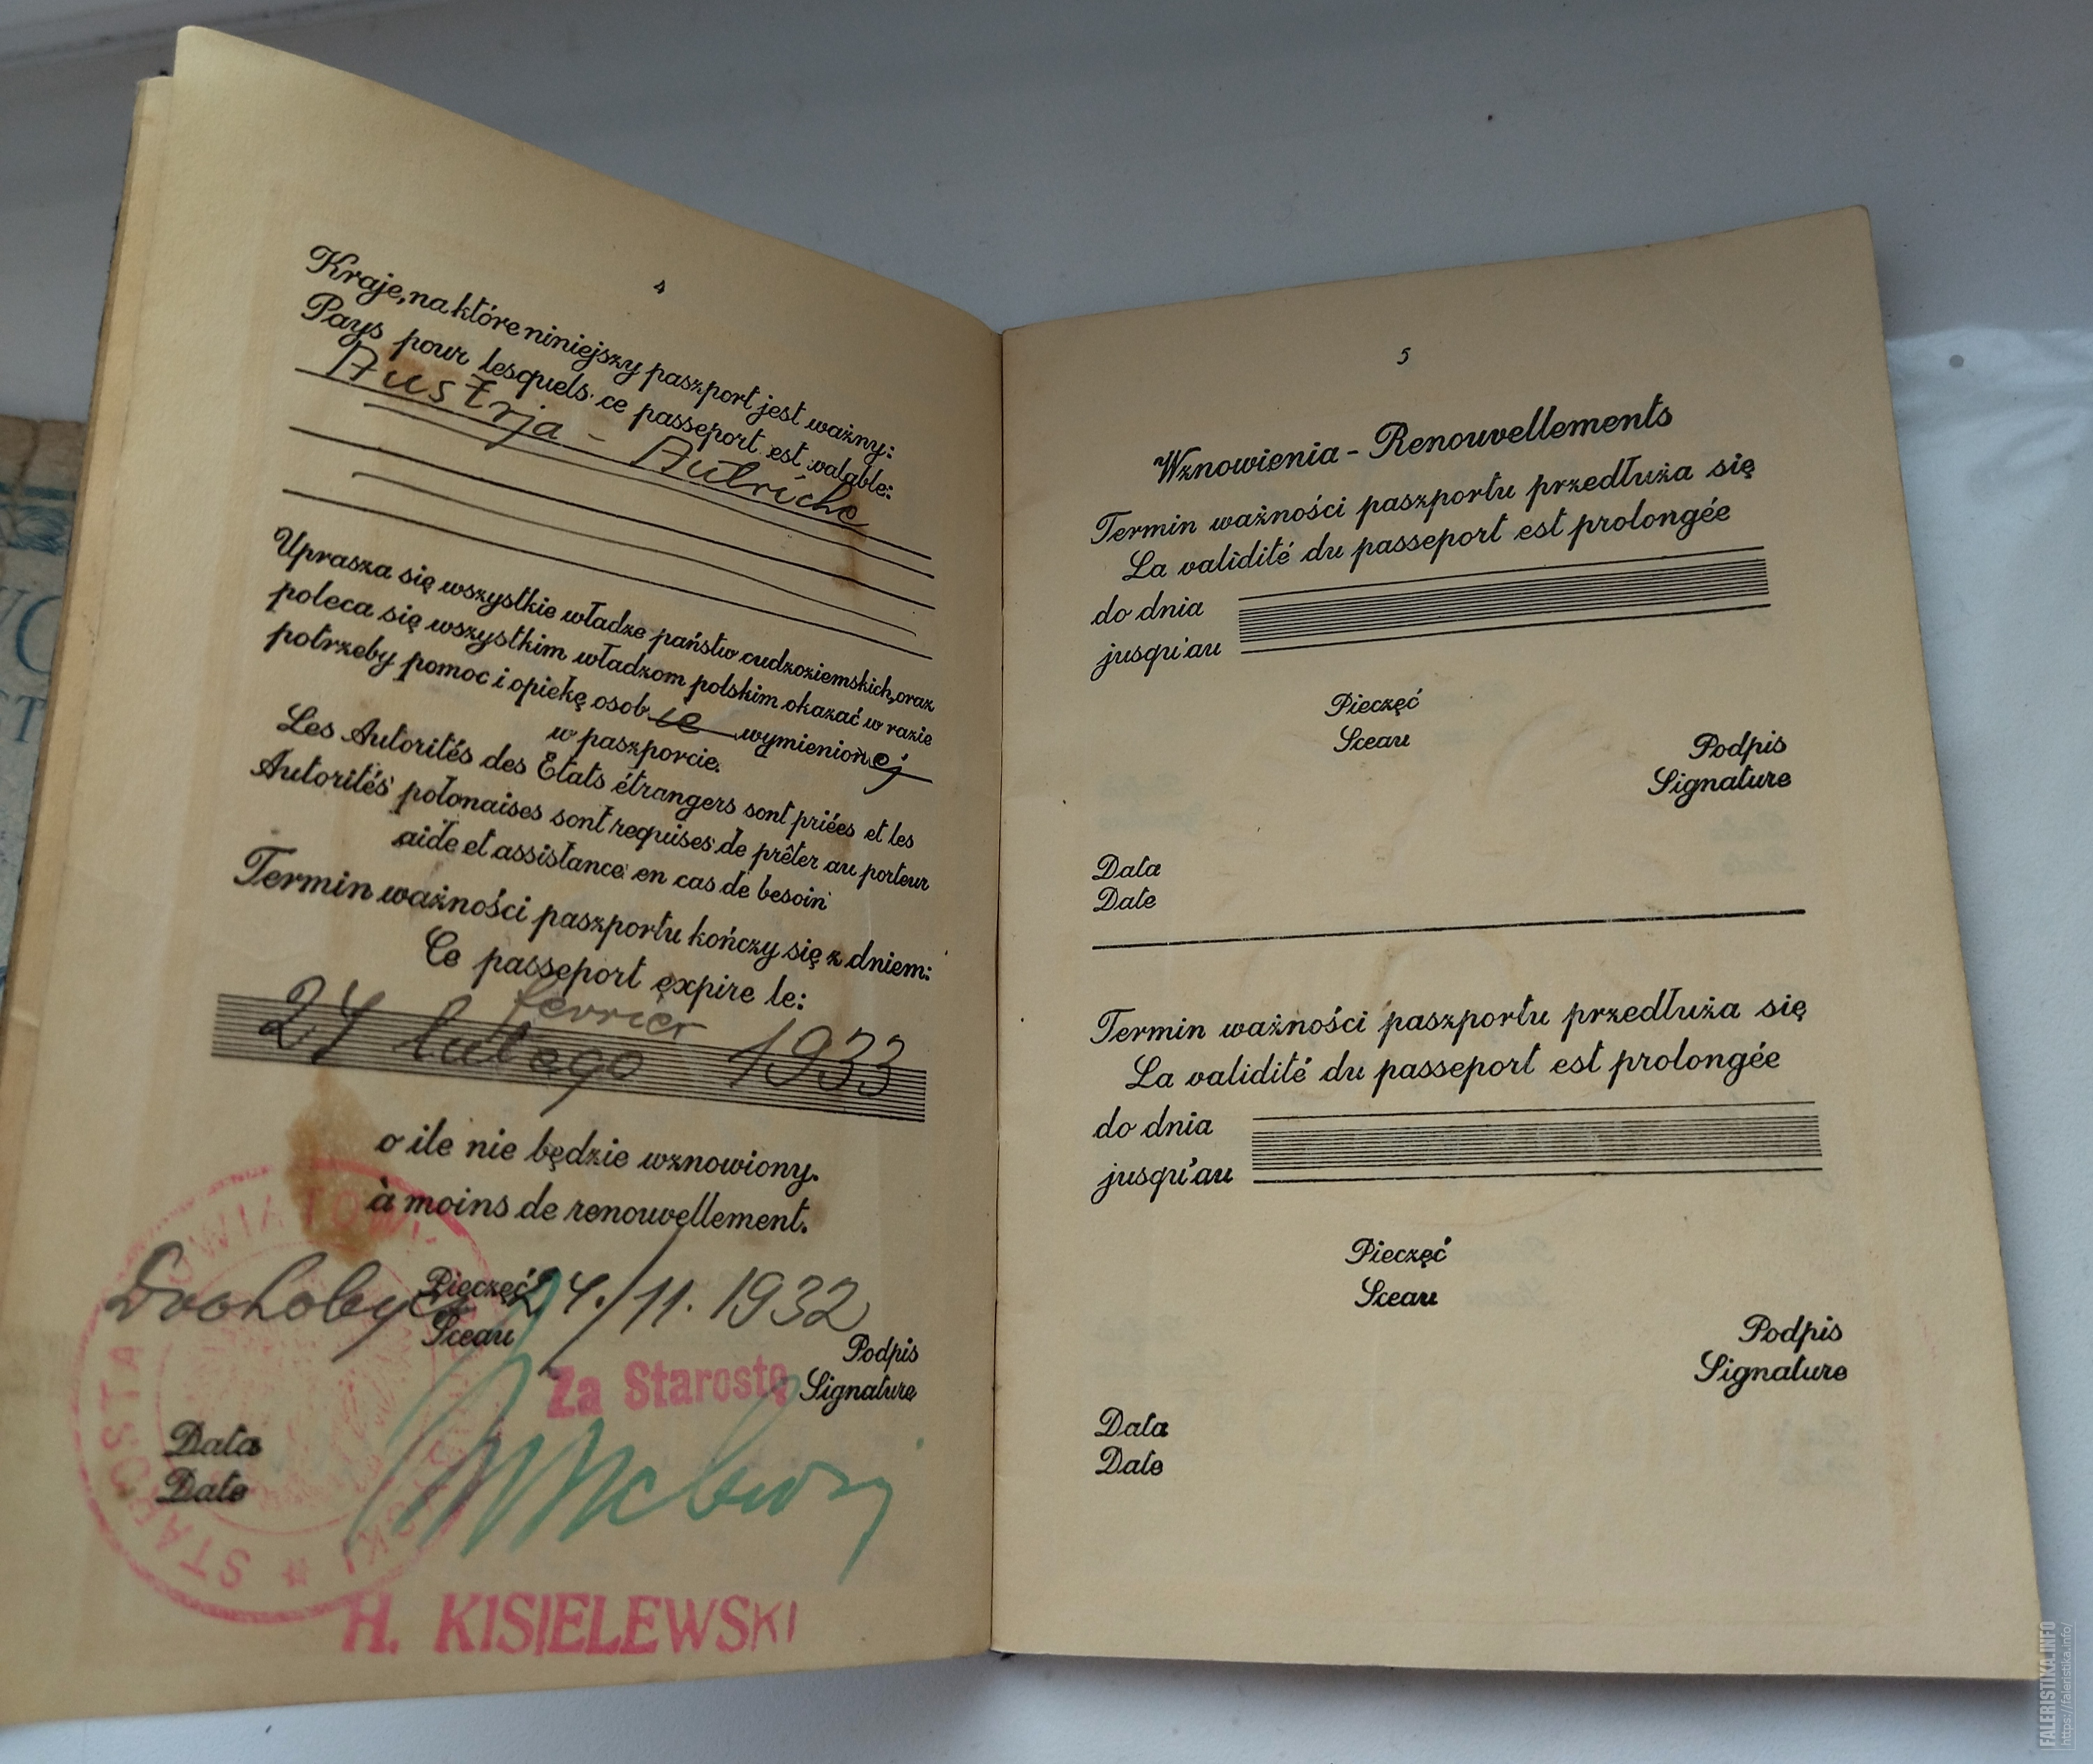 4
Kraje, na które niniejszy paszport jest ważny:
Pays pour lesquels ce passeport est valable:
Austrja - Autriche
Uprasza się wszystkie władze państw cudzoziemskich, oraz
poleca się wszystkim władzom polskim okazać w razie
potrzeby pomoc i opiekę osobie wymienionej
w paszporcie.
Les Autorités des Etats étrangers sont priées et les
Autorités polonaises sont requises de prêter au porteur
aide et assistance en cas de besoin
Termin ważności paszportu kończy się z dniem:
Ce passeport expire le:
fevrier
24 lutego 1933
o ile nie będzie wznowiony.
à moins de renouvellement.
Drohobycz 24./11. 1932
Pieczęć
Sceau
Podpis
Za Starostę Signature
Data
Date
STAROSTA POWIATOWY
H. KISIELEWSKI
5
Wznowienia - Renouvellements
Termin ważności paszportu przedłuża się
La validité du passeport est prolongée
do dnia
jusqu'au
Pieczęć
Sceau
Podpis
Signature
Data
Date
Termin ważności paszportu przedłuża się
La validité du passeport est prolongée
do dnia
jusqu'au
Pieczęć
Sceau
Podpis
Signature
Data
Date
FALERISTIKA.INFO
https://faleristika.info/